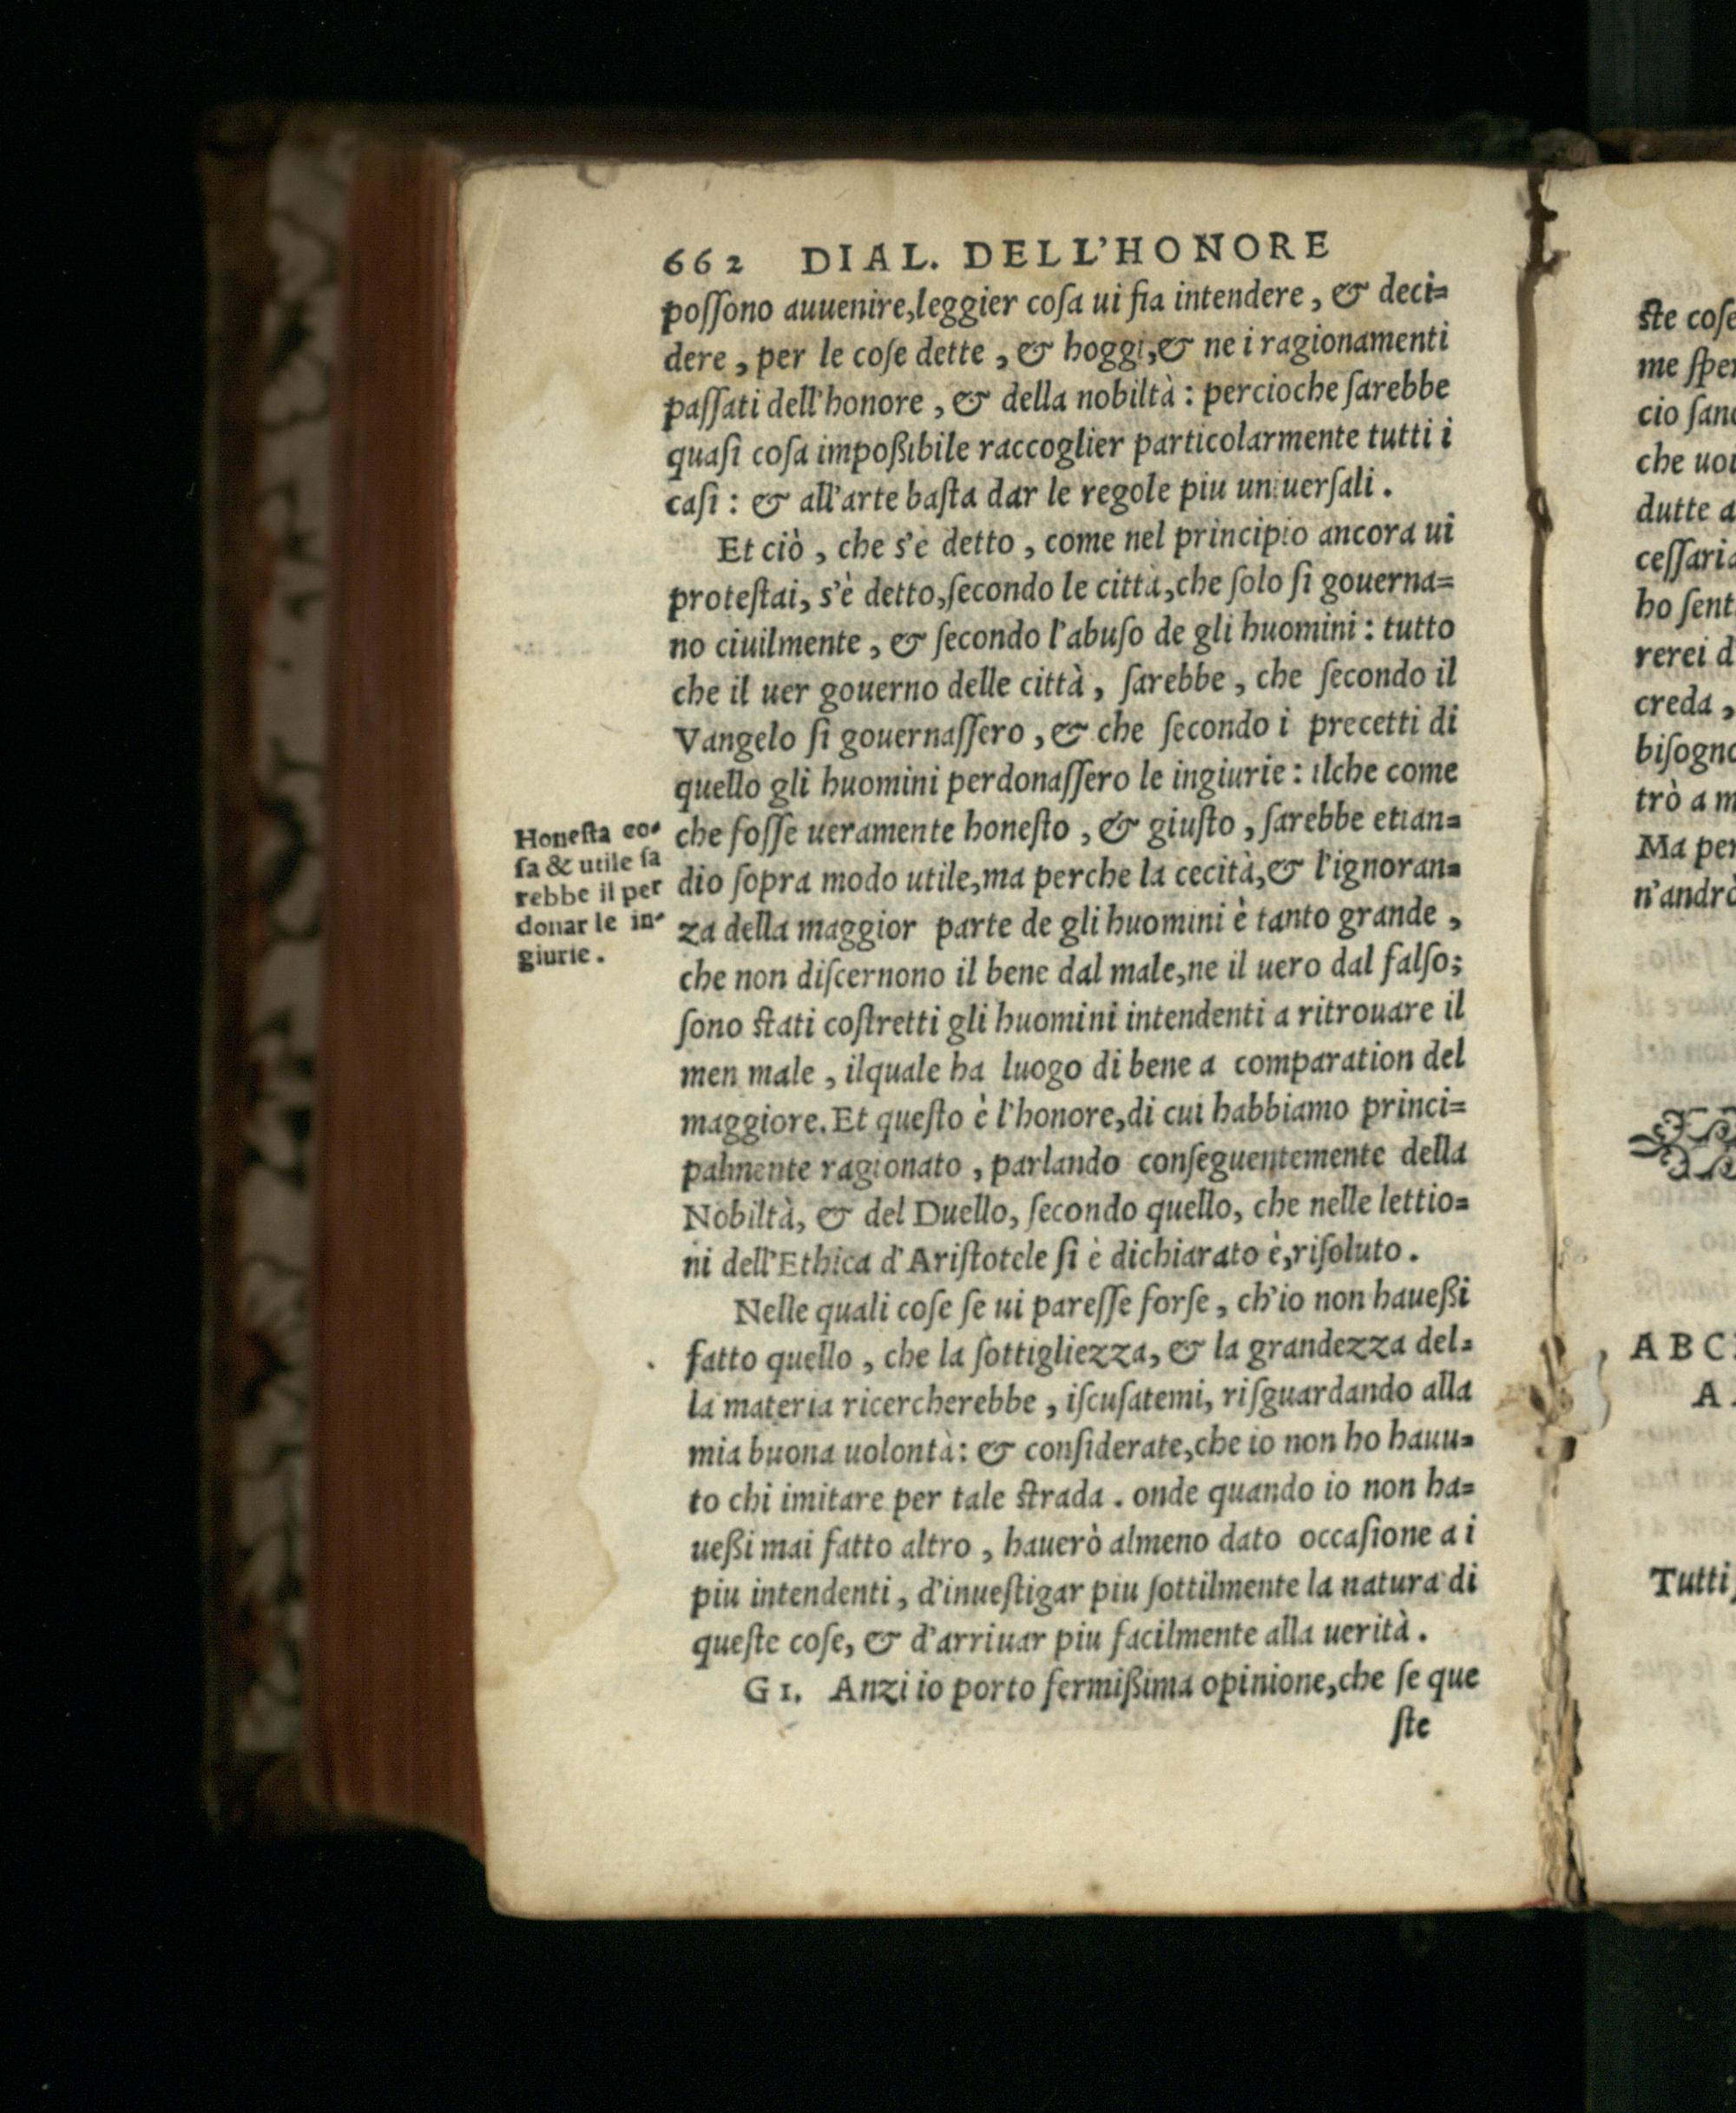 662 DIAL. DELL'HONORE
poſſono auuenire,leggier coſa ui fia intendere, & deci=
dere, per le coſe dette, & hoggi,& ne i ragionamenti
paſſati dell'honore, & della nobiltà: percioche ſarebbe
quaſi coſa impoßibile raccoglier particolarmente tutti i
caſi: & all'arte baſta dar le regole piu uniuerſali.
Et ciò, che s'è detto, come nel principio ancora ui
proteſtai, s'è detto,ſecondo le città,che ſolo ſi gouerna=
no ciuilmente, & ſecondo l'abuſo de gli huomini: tutto
che il uer gouerno delle città, ſarebbe, che ſecondo il
Vangelo ſi gouernaſſero, & che ſecondo i precetti di
quello gli huomini perdonaſſero le ingiurie: ilche come
che foſſe ueramente honeſto, & giuſto, ſarebbe etian=
dio ſopra modo utile,ma perche la cecità,& l'ignoran=
za della maggior parte de gli huomini è tanto grande,
che non diſcernono il bene dal male,ne il uero dal falſo;
ſono ſtati coſtretti gli huomini intendenti a ritrouare il
men male, ilquale ha luogo di bene a comparation del
maggiore. Et queſto è l'honore,di cui habbiamo princi=
palmente ragionato, parlando conſeguentemente della
Nobiltà, & del Duello, ſecondo quello, che nelle lettio=
ni dell'Ethica d'Ariſtotele ſi è dichiarato è,riſoluto.
Nelle quali coſe ſe ui pareſſe forſe, ch'io non haueßi
fatto quello, che la ſottigliezza, & la grandezza del=
la materia ricercherebbe, iſcuſatemi, riſguardando alla
mia buona uolontà: & conſiderate,che io non ho hauu=
to chi imitare per tale ſtrada. onde quando io non ha=
ueßi mai fatto altro, hauerò almeno dato occaſione a i
piu intendenti, d'inueſtigar piu ſottilmente la natura di
queſte coſe, & d'arriuar piu facilmente alla uerità.
GI. Anzi io porto fermißima opinione,che ſe que
ſte
Honeſta co-
ſa & utile ſa
rebbe il per
donar le in-
giurie.
ſte coſe
me ſper
cio ſan
che uo
dutte a
ceſſaria
ho ſent
rerei d
creda,
biſogno
trò a m
Ma per
n'andrò
ABC
A
Tutti